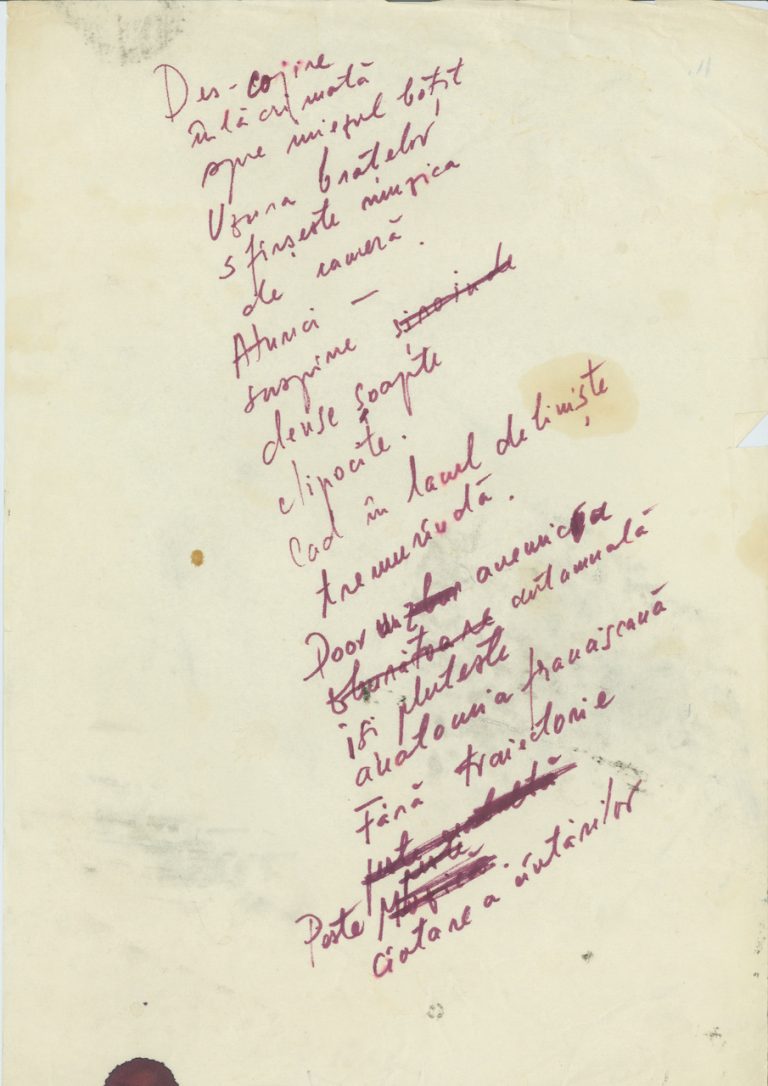 Des-cojire
înlăcrimată
spre miezul boțit
Uzura brațelor
sfîrșește muzica
de cameră.
Atunci –
suspine
dense șoapte
clipocite.
Cad în lacul de liniște
tremurîndă.
Doar anemica
autumnală
își plutește
anatomia franciscană
Fără traiectorie
Peste
căutare a căutărilor